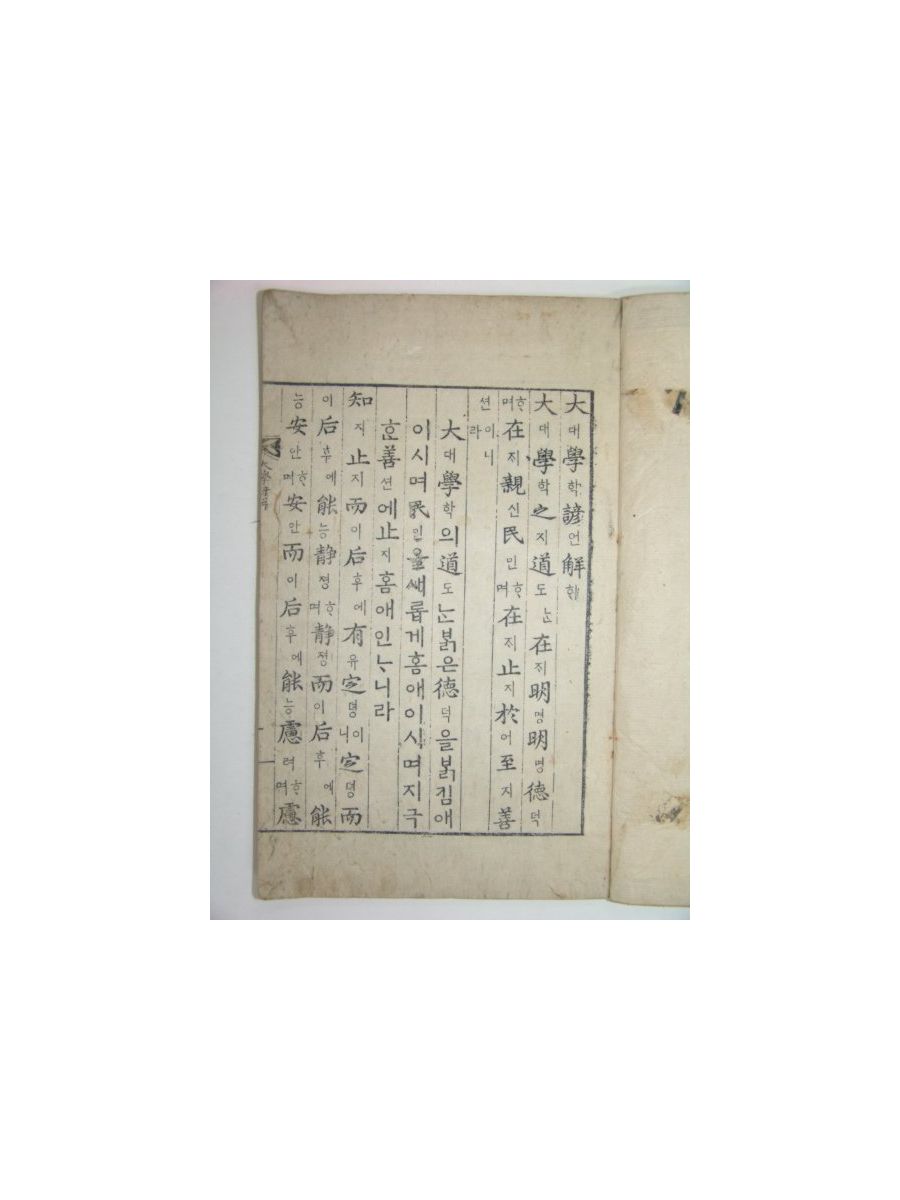 大대學학諺언解ᄒᆡ
大대學학之지道도ᄂᆞᆫ在ᄌᆡ明명明명德덕
ᄒᆞ며在ᄌᆡ親신民민ᄒᆞ며在ᄌᆡ止지於어至지善
션이니라
大대學학의道도ᄂᆞᆫ붉은德덕을붉킴애
이시며民민을새롭게홈애이시며지극
ᄒᆞᆫ善션에止지홈애인ᄂᆞ니라
知지止지而이后후에有유定뎡이니定뎡而
이后후에能능静졍ᄒᆞ며静졍而이后후에能
능安안ᄒᆞ며安안而이后후에能능慮려ᄒᆞ며慮
大學諺解
一